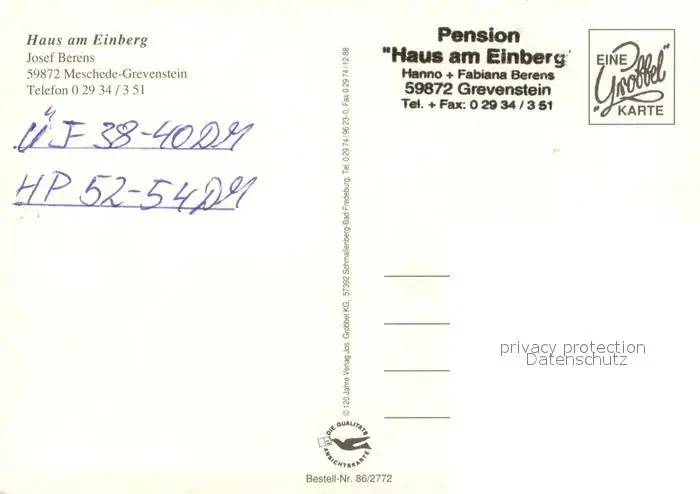 Haus am Einberg
Josef Berens
59872 Meschede-Grevenstein
Telefon 0 29 34 / 3 51
ÜF 38-40DM
HP 52-54DM
© 120 Jahre Verlag Jos. Grobbel KG, 57392 Schmallenberg-Bad Fredeburg, Tel. 0 29 74 / 96 23-0, Fax 0 29 74 / 12 88
Pension
"Haus am Einberg"
Hanno + Fabiana Berens
59872 Grevenstein
Tel. + Fax: 0 29 34 / 3 51
EINE
"Grobbel"
KARTE
privacy protection
Datenschutz
DIE QUALITÄTS
ANSICHTSKARTE
Bestell-Nr. 86/2772